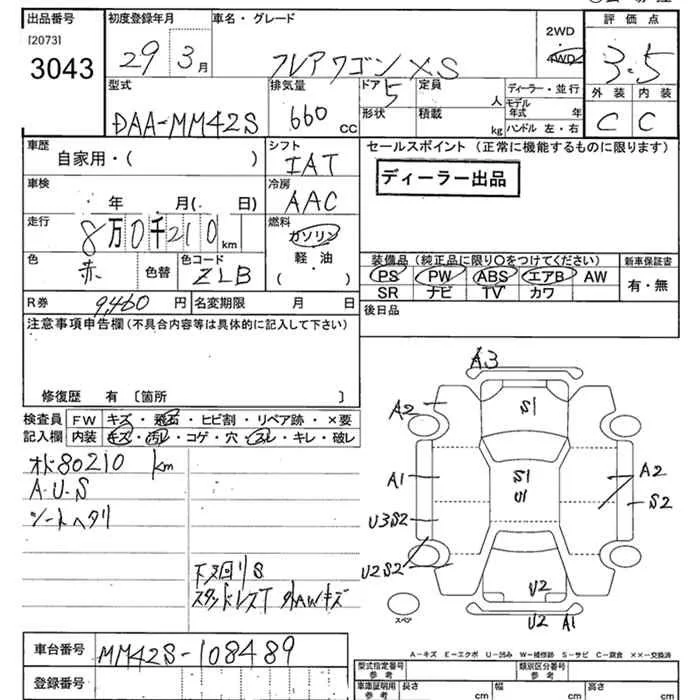 出品番号
[2073]
3043
初度登録年月
29 3月
車名・グレード
フレアワゴン XS
2WD
4WD
評価点
3.5
外装 内装
C C
型式
DAA-MM42S
排気量
660 cc
ドア 5
形状
定員 人
積載 kg
ディーラー・並行
モデル年式 年
ハンドル 左・右
車歴
自家用・( )
シフト
IAT
セールスポイント (正常に機能するものに限ります)
ディーラー出品
車検
年 月( 日)
冷房
AAC
走行
8万0千210 km
燃料
ガソリン
軽・油
( )
色
赤
色替
色コード
ZLB
装備品 (純正品に限り○をつけてください)
PS PW ABS エアB AW
SR ナビ TV カワ
新車保証書
有・無
R券 9,460 円
名変期限 月 日
後日品
注意事項申告欄 (不具合内容等は具体的に記入して下さい)
修復歴 有 〔箇所 〕
検査員記入欄
FW キズ・飛石・ヒビ割・リペア跡・×要
内装 キズ・汚レ・コゲ・穴・スレ・キレ・破レ
オド80210 km
A・U・S
シートヘタリ
下回りS
スタッドレスT 外AWキズ
A3
A2
S1
A1
S1
U1
A2
S2
U3S2
U2S2
U2
U2 A1
スペア
A-キズ E-エクボ U-凹み W-補修跡 S-サビ C-腐食 ××-交換済
車台番号
MM42S-108489
登録番号
型式指定番号 参考
類別区分番号 参考
車庫証明用 参考
長さ cm
幅 cm
高さ cm